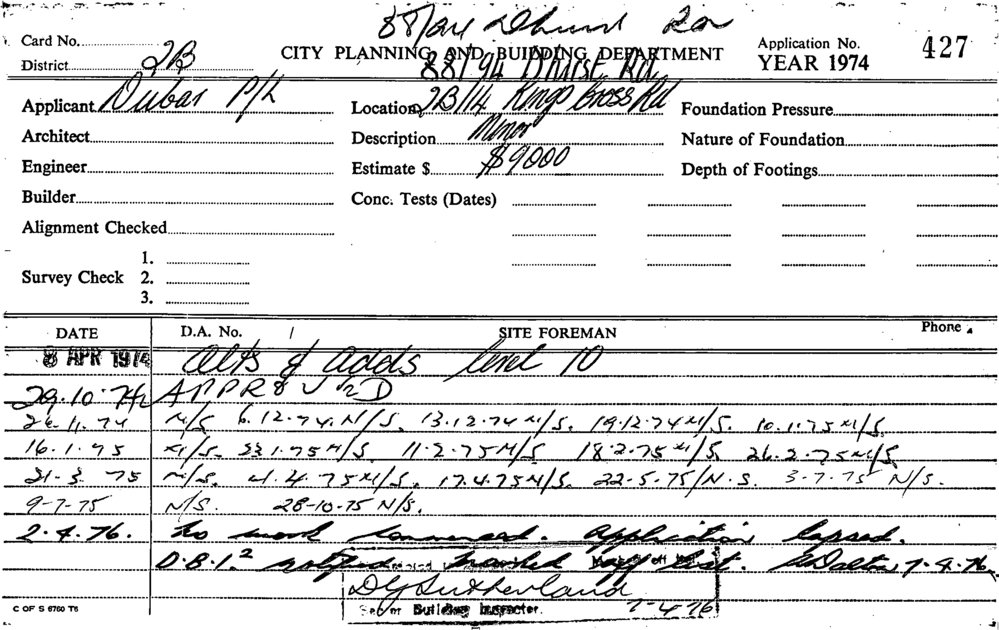 88/94 Dhurst Rd
Card No.
CITY PLANNING AND BUILDING DEPARTMENT
Application No. 427
YEAR 1974
District 2B
88/94 Dhurst Rd
Applicant Dubar P/L
Location 2B/14 Kings Cross Rd
Foundation Pressure
Architect
Description Minor
Nature of Foundation
Engineer
Estimate $ $9000
Depth of Footings
Builder
Conc. Tests (Dates)
Alignment Checked
Survey Check 1.
2.
3.
DATE D.A. No. / SITE FOREMAN Phone
8 APR 1974 Alts & adds level 10
29.10.74 APPROVED
26.11.74 N/S 6.12.74 N/S. 13.12.74 N/S. 19.12.74 N/S. 10.1.75 N/S.
16.1.75 N/S. 23.1.75 N/S. 11.2.75 N/S 18.2.75 N/S 26.2.75 N/S
21.3.75 N/S. 4.4.75 N/S. 17.4.75 N/S. 22.5.75 N.S. 3-7-75 N/S.
9-7-75 N/S. 28-10-75 N/S.
2.4.76. No work commenced. Application lapsed.
D.B.I.2 notified marked off list. 7.4.76
D G Sutherland
Senior Building Inspector. 7-4-76
C OF S 6760 T6